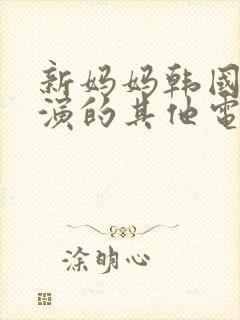 新妈妈韩国
演的其他電
涂明心